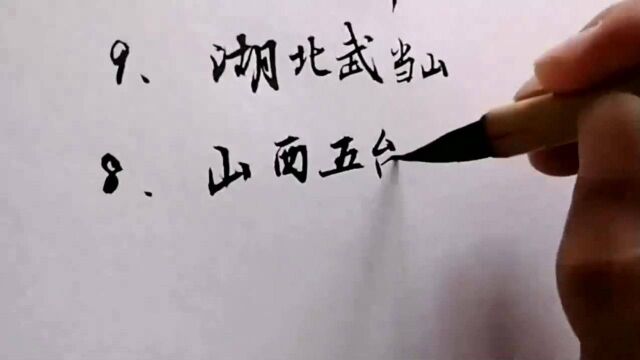 9、湖北武当山
8、山西五台